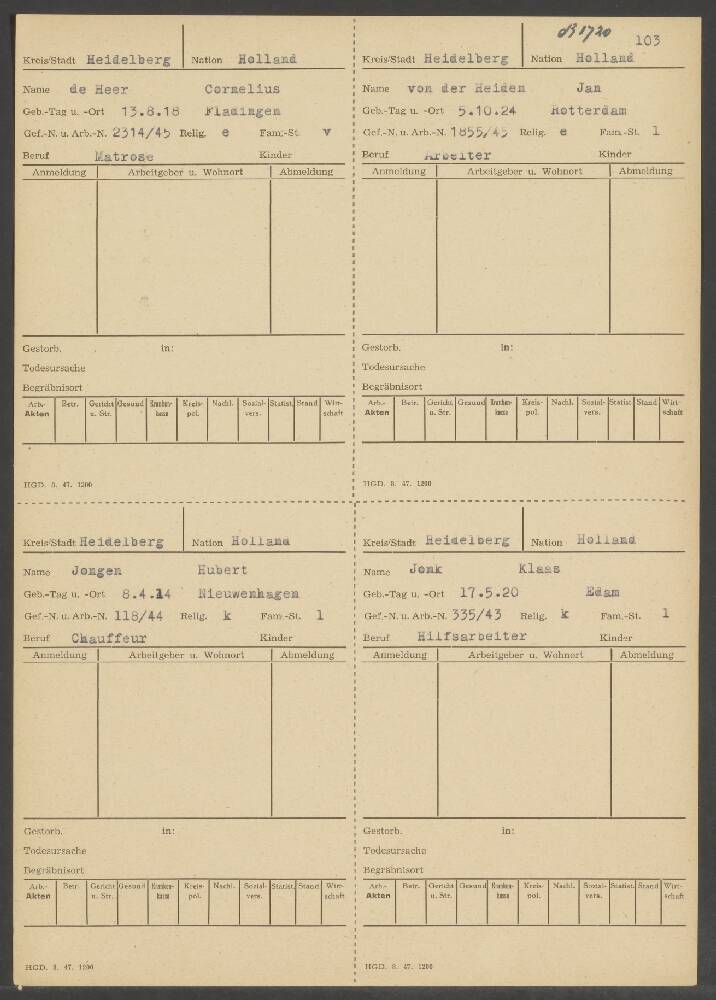 103
Kreis/Stadt Heidelberg Nation Holland
Name de Heer Cornelius
Geb.-Tag u. -Ort 13.8.18 Fladingen
Gef.-N. u. Arb.-N. 2314/45 Relig. e Fam.-St. v
Beruf Matrose Kinder
Anmeldung Arbeitgeber u. Wohnort Abmeldung
Gestorb. in:
Todesursache
Begräbnisort
Arb.-Akten Betr. Gericht u. Str. Gesund Kranken-kasse Kreis-pol. Nachl. Sozial-vers. Statist. Stand Wirt-schaft
HGD. 8. 47. 1200
Kreis/Stadt Heidelberg Nation Holland
Name von der Heiden Jan
Geb.-Tag u. -Ort 5.10.24 Rotterdam
Gef.-N. u. Arb.-N. 1855/45 Relig. e Fam.-St. l
Beruf Arbeiter Kinder
Anmeldung Arbeitgeber u. Wohnort Abmeldung
Gestorb. in:
Todesursache
Begräbnisort
Arb.-Akten Betr. Gericht u. Str. Gesund Kranken-kasse Kreis-pol. Nachl. Sozial-vers. Statist Stand Wirt-schaft
HGD. 8. 47. 1200
Kreis/Stadt Heidelberg Nation Holland
Name Jongen Hubert
Geb.-Tag u. -Ort 8.4.14 Nieuwenhagen
Gef.-N. u. Arb.-N. 118/44 Relig. k Fam.-St. l
Beruf Chauffeur Kinder
Anmeldung Arbeitgeber u. Wohnort Abmeldung
Gestorb. in:
Todesursache
Begräbnisort
Arb.-Akten Betr. Gericht u. Str. Gesund Kranken-kasse Kreis-pol. Nachl. Sozial-vers. Statist. Stand Wirt-schaft
HGD. 8. 47. 1200
Kreis/Stadt Heidelberg Nation Holland
Name Jonk Klaas
Geb.-Tag u. -Ort 17.5.20 Edam
Gef.-N. u. Arb.-N. 335/43 Relig. k Fam.-St. l
Beruf Hilfsarbeiter Kinder
Anmeldung Arbeitgeber u. Wohnort Abmeldung
Gestorb. in:
Todesursache
Begräbnisort
Arb.-Akten Betr. Gericht u. Str. Gesund Kranken-kasse Kreis-pol. Nachl. Sozial-vers. Statist. Stand Wirt-schaft
HGD. 8. 47. 1200